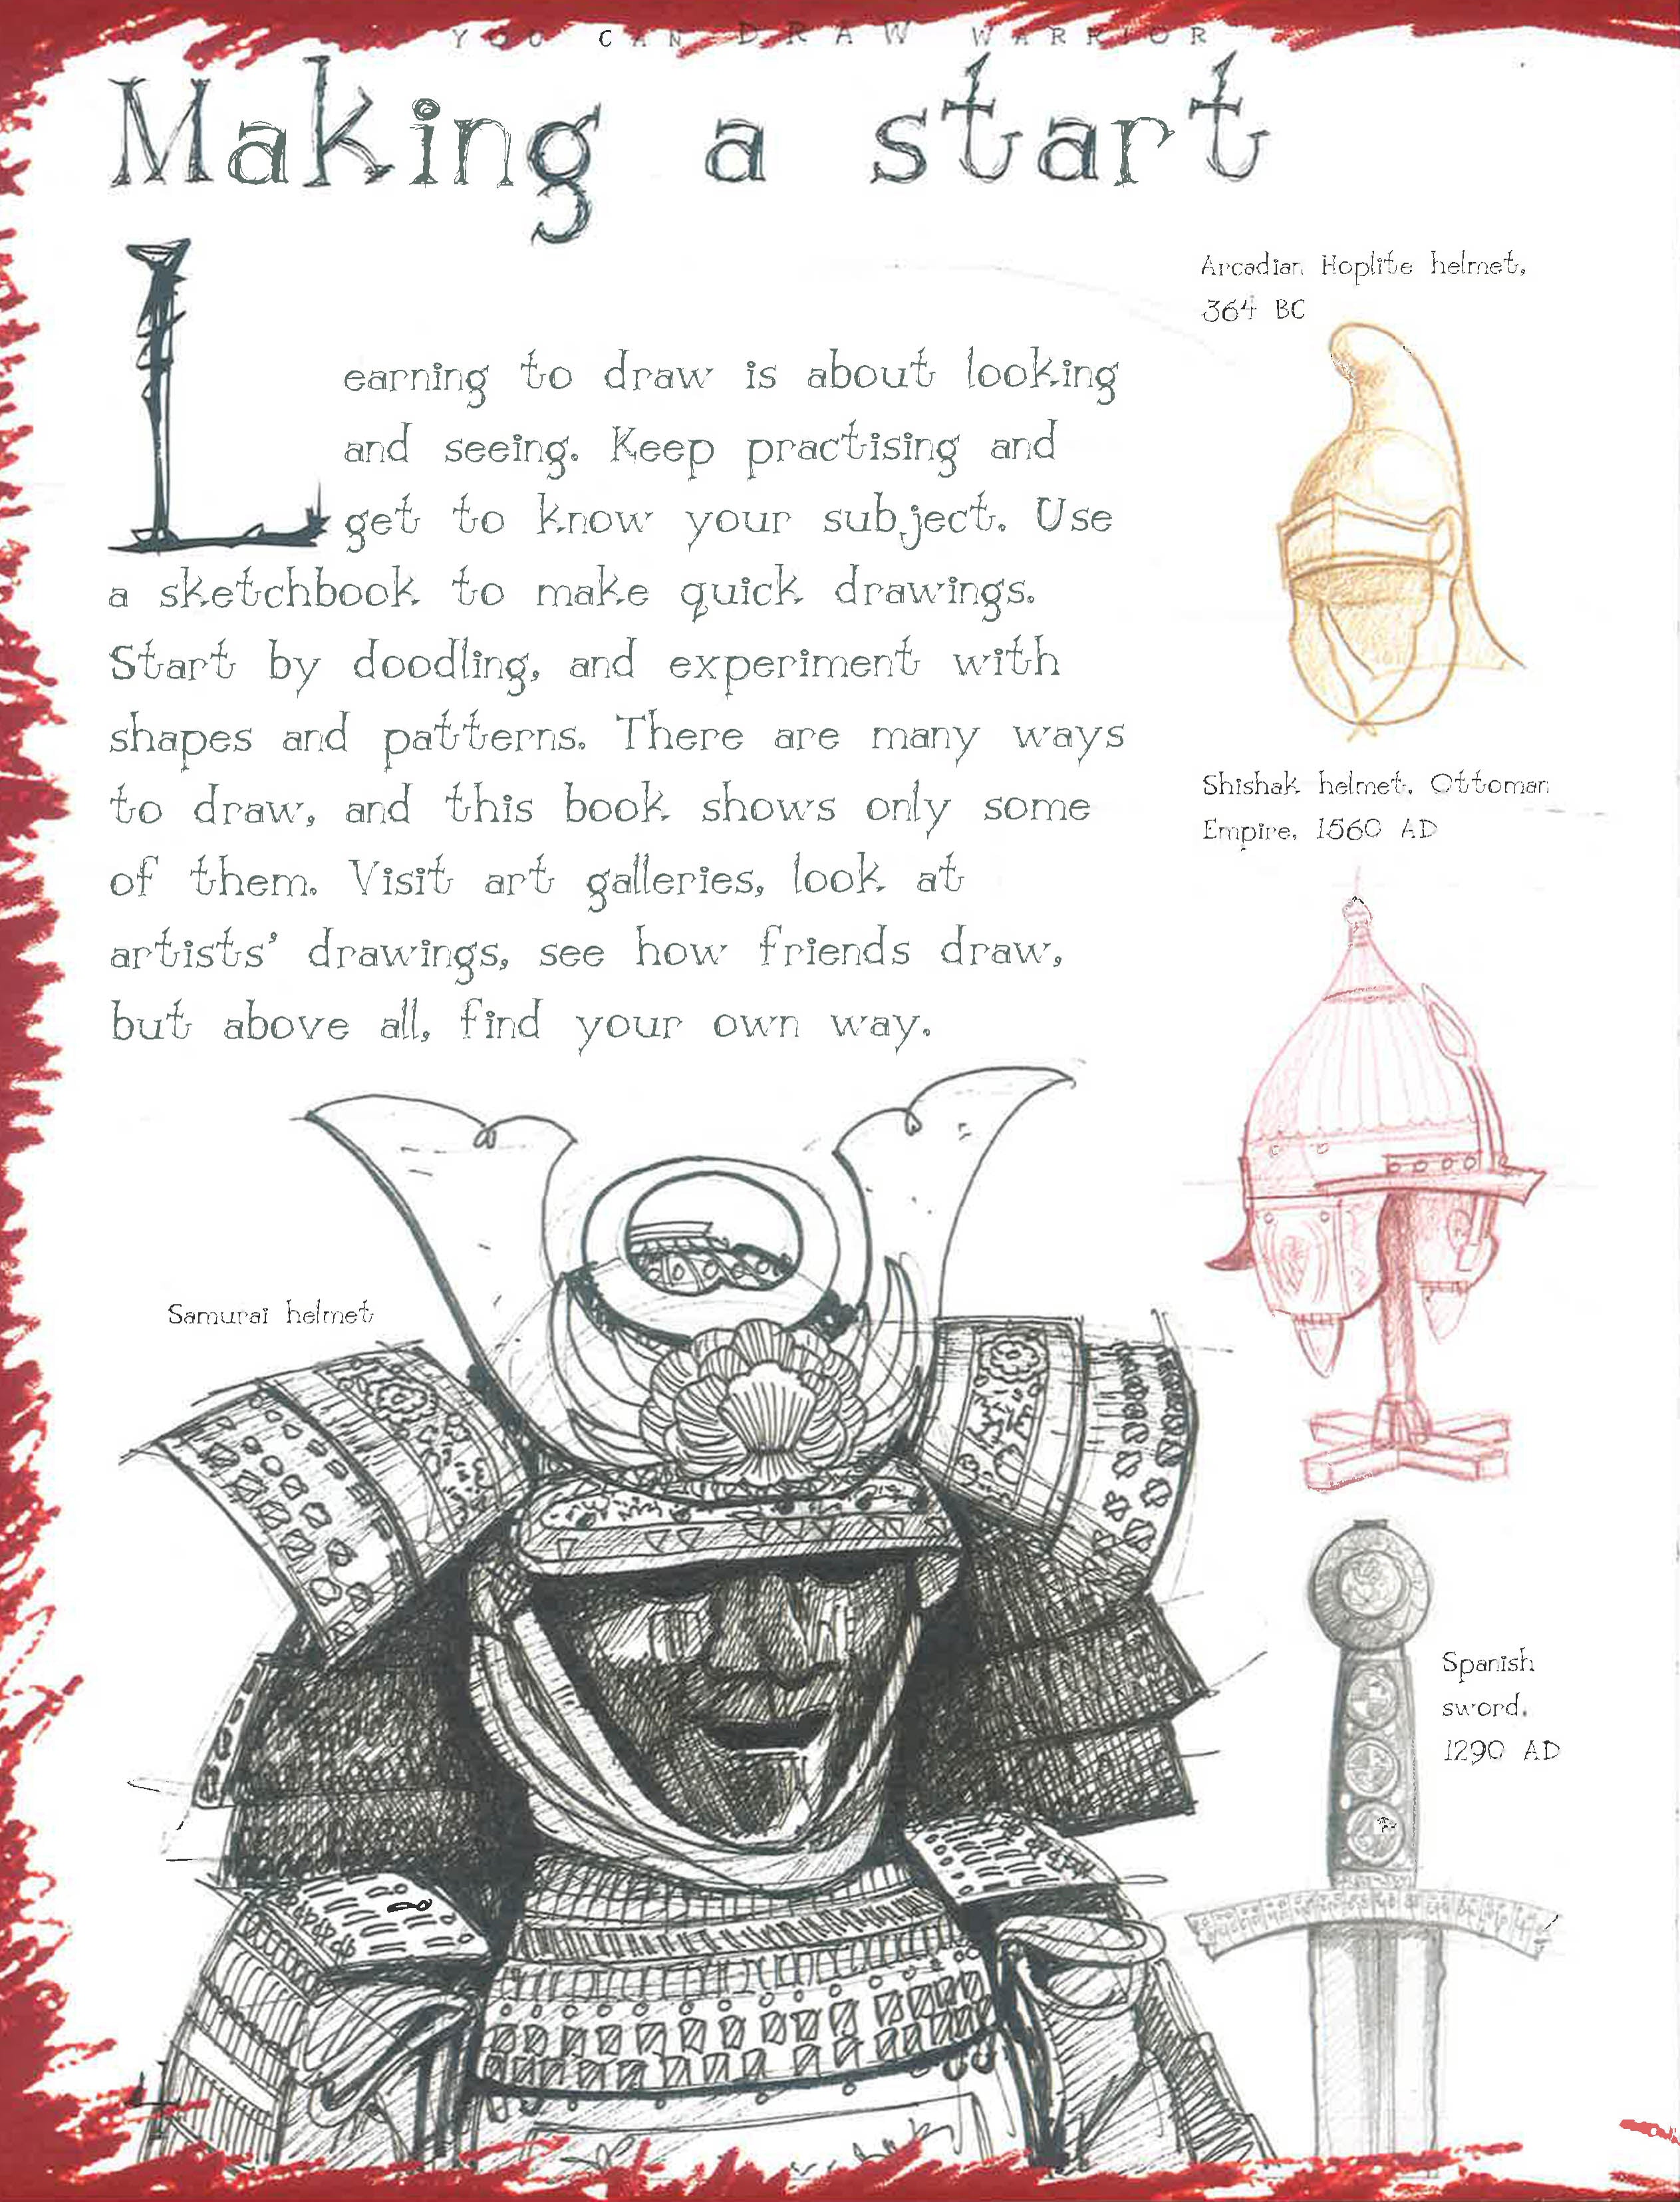 YOU CAN DRAW WARRIOR
Making a start
Learning to draw is about looking
and seeing. Keep practising and
get to know your subject. Use
a sketchbook to make quick drawings.
Start by doodling, and experiment with
shapes and patterns. There are many ways
to draw, and this book shows only some
of them. Visit art galleries, look at
artists' drawings, see how friends draw,
but above all, find your own way.
Arcadian Hoplite helmet,
364 BC
Shishak helmet, Ottoman
Empire, 1560 AD
Samurai helmet
Spanish
sword,
1290 AD